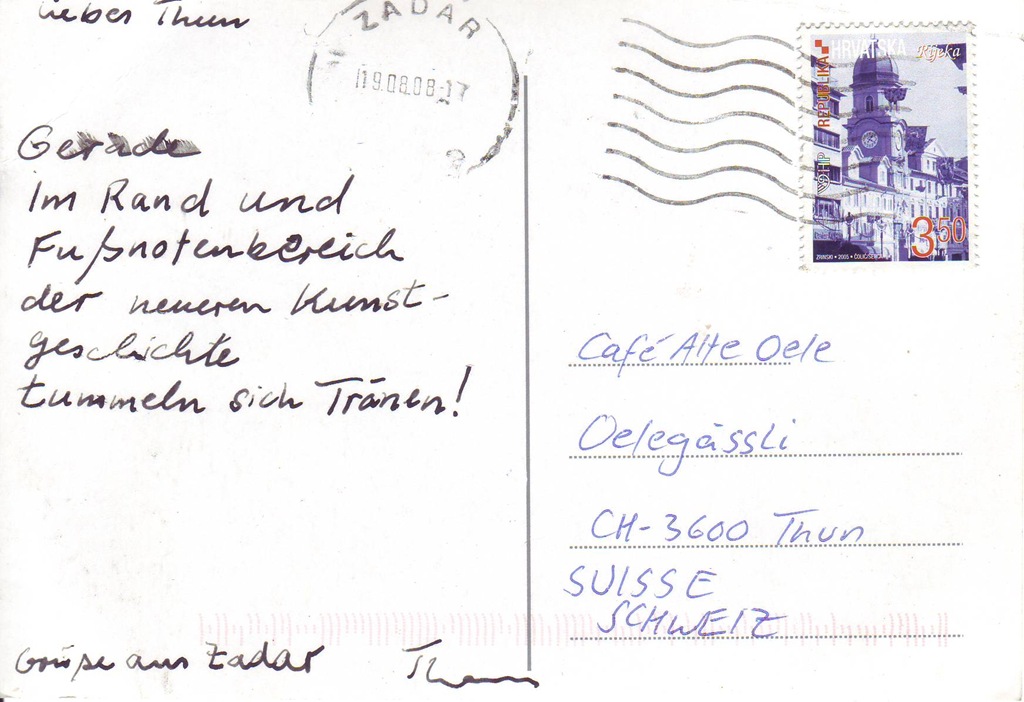 lieber Thun
Gerade
Im Rand und
Fußnotenbereich
der neueren Kunst-
geschichte
tummeln sich Tränen!
Grüße aus Zadar
ZADAR
19.08.08-17
2
REPUBLIKA HRVATSKA
Rijeka
HP
3.50
ZRINSKI • 2005 •
Café Alte Oele
Oelegässli
CH-3600 Thun
SUISSE
SCHWEIZ